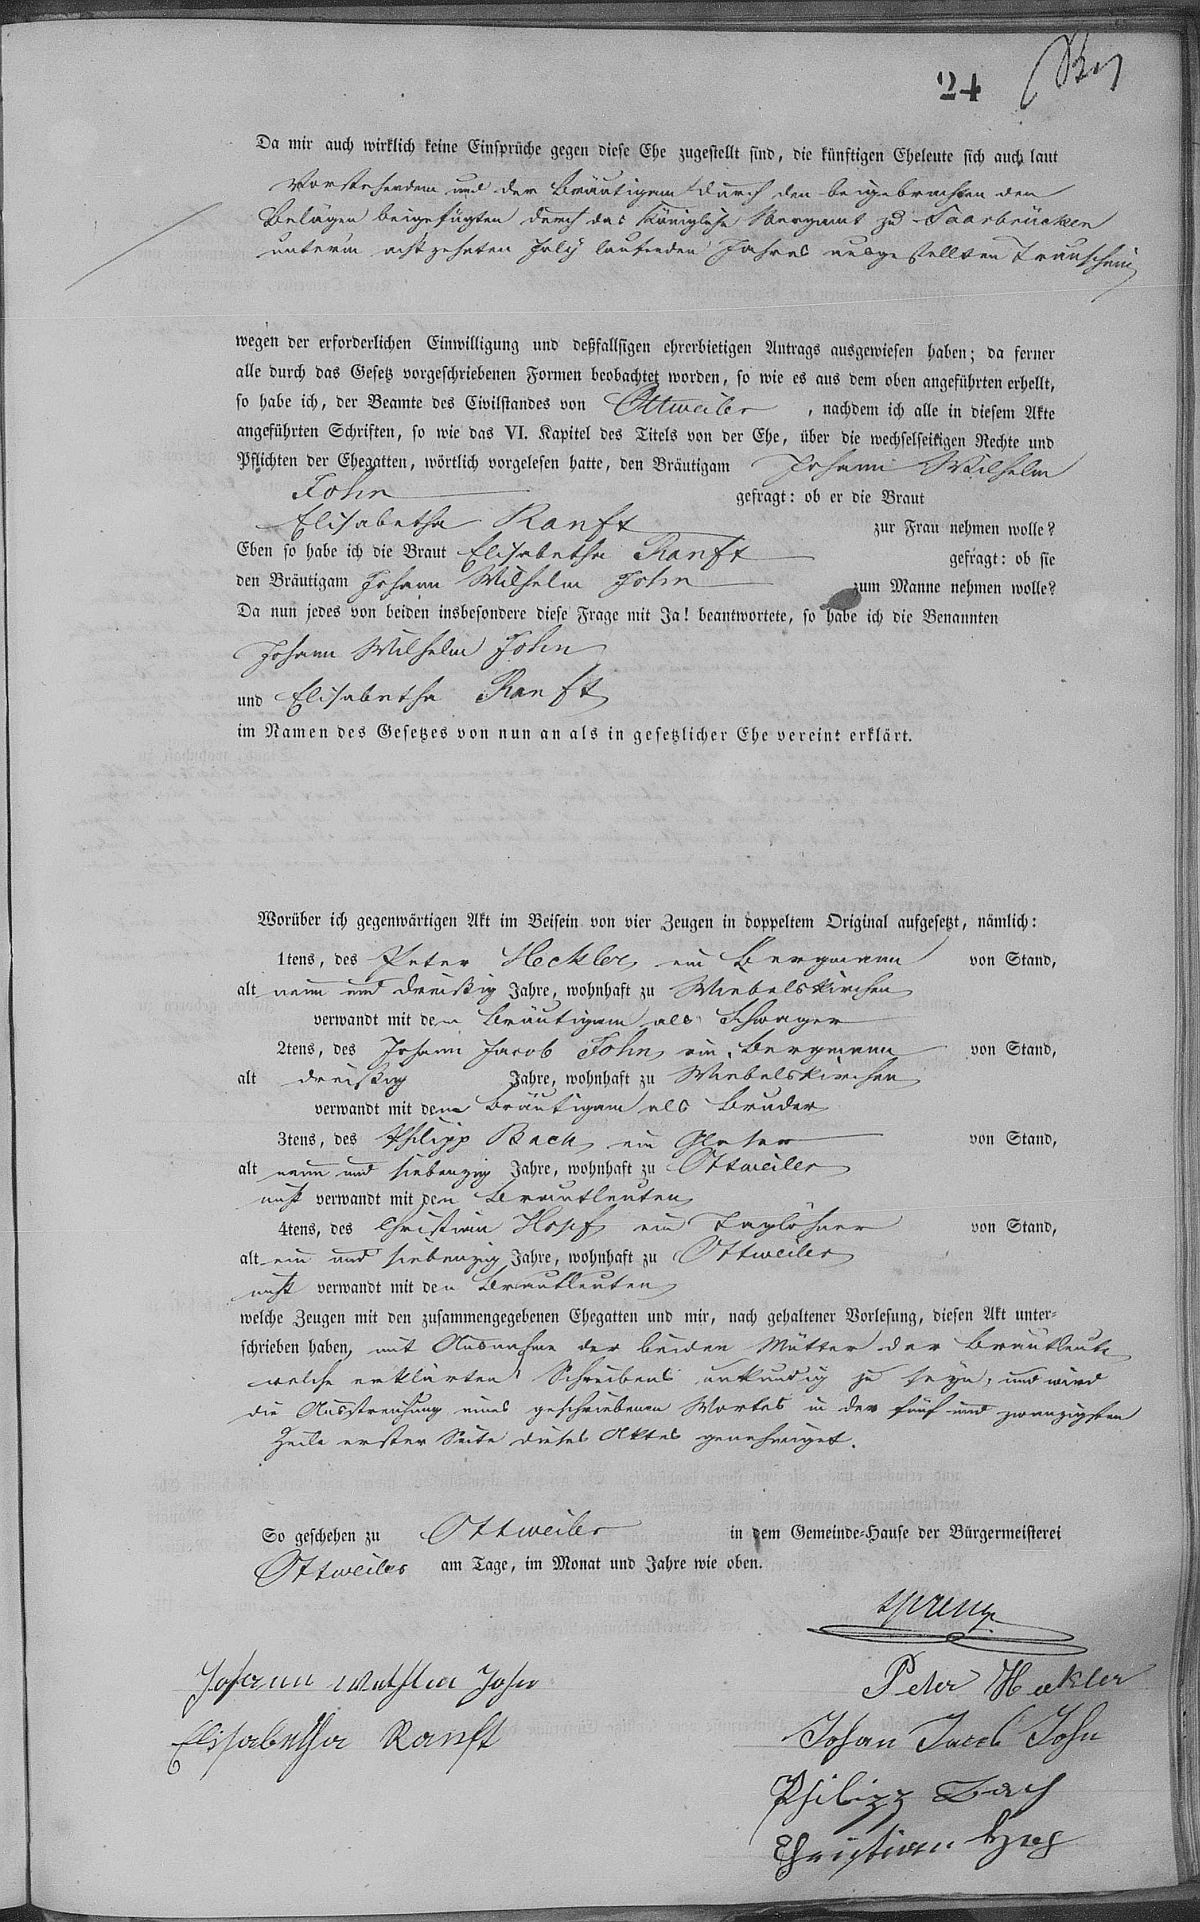 24
Da mir auch wirklich keine Einsprüche gegen diese Ehe zugestellt sind, die künftigen Eheleute sich auch laut
Vorstehendem und der Bräutigam durch den beigebrachten den
Belägen beigefügten durch das Königliche Bergamt zu Saarbrücken
unterm achtzehnten July laufenden Jahres ausgestellten Trauschein
wegen der erforderlichen Einwilligung und deßfallsigen ehrerbietigen Antrags ausgewiesen haben; da ferner
alle durch das Gesetz vorgeschriebenen Formen beobachtet worden, so wie es aus dem oben angeführten erhellt,
so habe ich, der Beamte des Civilstandes von Ottweiler , nachdem ich alle in diesem Akte
angeführten Schriften, so wie das VI. Kapitel des Titels von der Ehe, über die wechselseitigen Rechte und
Pflichten der Ehegatten, wörtlich vorgelesen hatte, den Bräutigam Johann Wilhelm
John gefragt: ob er die Braut
Elisabetha Ranft zur Frau nehmen wolle?
Eben so habe ich die Braut Elisabetha Ranft gefragt: ob sie
den Bräutigam Johann Wilhelm John zum Manne nehmen wolle?
Da nun jedes von beiden insbesondere diese Frage mit Ja! beantwortete, so habe ich die Benannten
Johann Wilhelm John
und Elisabetha Ranft
im Namen des Gesetzes von nun an als in gesetzlicher Ehe vereint erklärt.
Worüber ich gegenwärtigen Akt im Beisein von vier Zeugen in doppeltem Original aufgesetzt, nämlich:
1tens, des Peter Heckler, ein Bergmann von Stand,
alt neun und dreißig Jahre, wohnhaft zu Wiebelskirchen
verwandt mit dem Bräutigam als Schwager
2tens, des Johann Jacob John, ein Bergmann von Stand,
alt dreißig Jahre, wohnhaft zu Wiebelskirchen
verwandt mit dem Bräutigam als Bruder
3tens, des Philipp Bach, ein Glaser von Stand,
alt neun und siebenzig Jahre, wohnhaft zu Ottweiler
nicht verwandt mit den Brautleuten
4tens, des Christian Hopf, ein Taglöhner von Stand,
alt ein und siebenzig Jahre, wohnhaft zu Ottweiler
nicht verwandt mit den Brautleuten
welche Zeugen mit den zusammengegebenen Ehegatten und mir, nach gehaltener Vorlesung, diesen Akt unter-
schrieben haben, mit Ausnahme der beiden Mütter der Brautleute
welche erklärten Schreibens unkundig zu seyn, und wird
die Ausstreichung eines geschriebenen Wortes in der fünf und zwanzigsten
Zeile erster Seite dieses Aktes genehmiget.
So geschehen zu Ottweiler in dem Gemeinde-Hause der Bürgermeisterei
Ottweiler am Tage, im Monat und Jahre wie oben.
Johann Wilhelm John
Peter Heckler
Elisabetha Ranft
Johan Jacob John
Philipp Bach
Christian